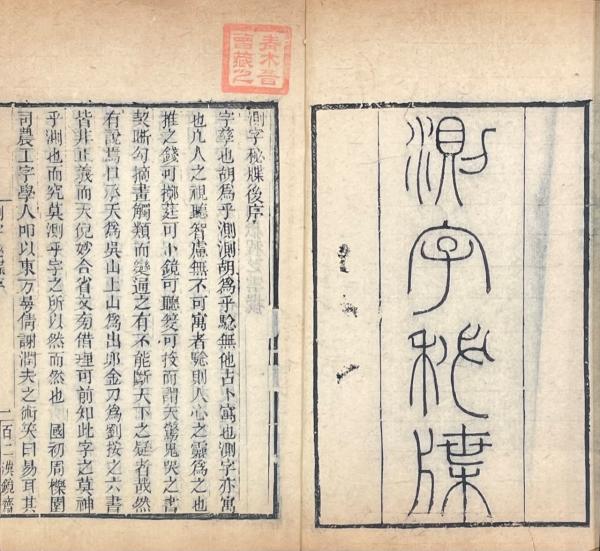 測字秘牒
測字秘牒後序
字孳也胡為乎測測胡為乎驗無他占卜寓也測字亦寓
也凢人之視聽智慮無不可寓者驗則人心之靈為之也
推之錢可擲莛可卜鏡可聽可投而謂天驚鬼哭之書
契斷勾摘畫觸類而變通之有不能斷天下之疑者哉然
有說焉口承天為吳山上山為出卯金刀為劉按之六書
皆非正義而天倪妙合省文借理可前知此字之莫神
乎測也而究莫測乎字之所以然而然也 國初周櫟園
司農工字學人即以東方曼倩謝潤夫之術矣曰易耳其
一 百二漢鏡齋